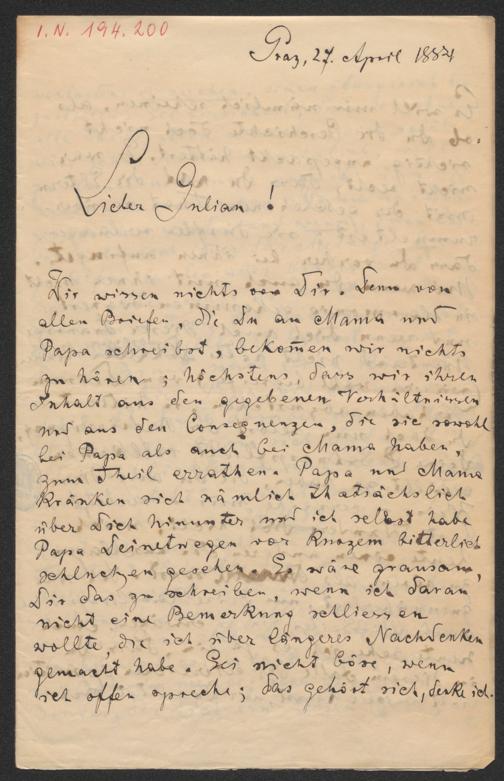 I.N. 194.200
Graz, 27. April 1884
Lieber Julian!
Wir wissen nichts von Dir. Denn von
allen Briefen, die Du an Mama und
Papa schreibst, bekom̅en wir nichts
zu hören; höchstens, dass wir ihren
Inhalt aus den gegebenen Verhältnissen
und aus den Consequenzen, die sie sowohl
bei Papa als auch bei Mama haben,
zum Theil errathen. Papa und Mama
kränken sich nämlich thatsächlich
über Dich hinunter und ich selbst habe
Papa Deinetwegen vor Kurzem bitterlich
schluchzen gesehen. Es wäre grausam,
Dir das zu schreiben, wenn ich daran
nicht eine Bemerkung schliessen
wollte, die ich über längeres Nachdenken
gemacht habe. Sei nicht böse, wenn
ich offen spreche; das gehört sich, denke ich.